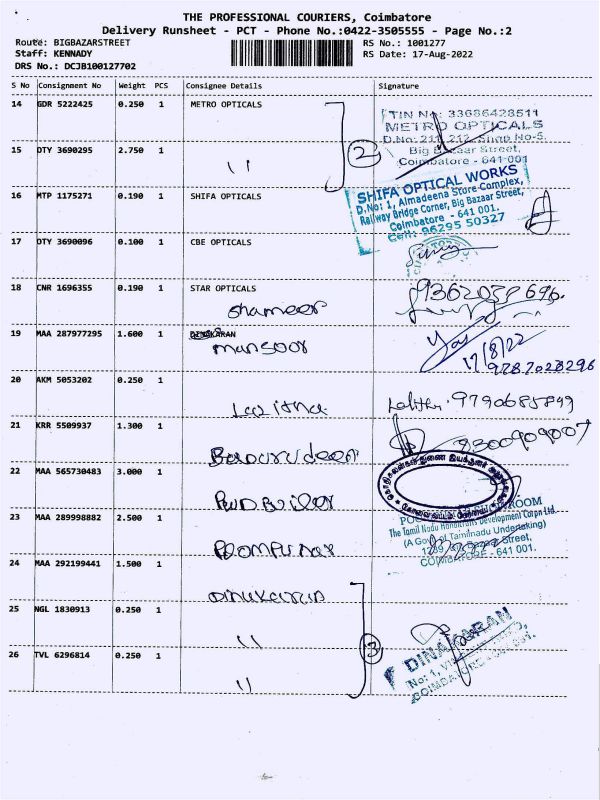 THE PROFESSIONAL COURIERS, Coimbatore
Delivery Runsheet - PCT - Phone No.:0422-3505555 - Page No.:2
Route: BIGBAZARSTREET RS No.: 1001277
Staff: KENNADY RS Date: 17-Aug-2022
DRS No.: DCJB100127702
S No Consignment No Weight PCS Consignee Details Signature
14 GDR 5222425 0.250 1 METRO OPTICALS
TIN No: 33686428511
METRO OPTICALS
D.No: 211, 212, Shop No-5,
Big Bazaar Street,
Coimbatore - 641 001
15 DTY 3690295 2.750 1 " 2
16 MTP 1175271 0.190 1 SHIFA OPTICALS
SHIFA OPTICAL WORKS
D.No: 1, Almadeena Store Complex,
Railway Bridge Corner, Big Bazaar Street,
Coimbatore - 641 001.
Cell: 96295 50327
17 DTY 3690096 0.100 1 CBE OPTICALS
18 CNR 1696355 0.190 1 STAR OPTICALS
Shameer 9362035696.
19 MAA 287977295 1.600 1 DINAKARAN
mansoor 17/8/22
9787028296
20 AKM 5053202 0.250 1
Lalitha Lalitha. 9790685849
21 KRR 5509937 1.300 1
9300909007
22 MAA 565730483 3.000 1
23 MAA 289998882 2.500 1
Poompuhar
SHOWROOM
The Tamil Nadu Handicrafts Development Corpn Ltd.
(A Govt. of Tamilnadu Undertaking)
Street,
COIMBATORE - 641 001.
24 MAA 292199441 1.500 1
Dinakaran
25 NGL 1830913 0.250 1 " 3
26 TVL 6296814 0.250 1 "
DINAKARAN
No: 1,
COIMBATORE